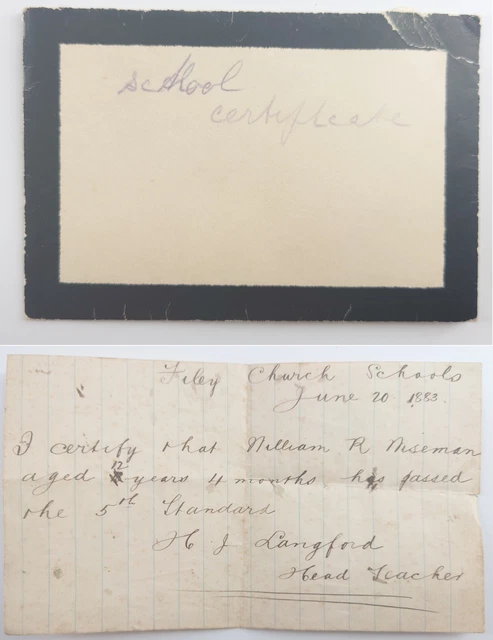 school
certificate
Filey Church Schools
June 20 1883.
I certify that William R Wiseman
aged 12 years 4 months has passed
the 5th Standard
H J Langford
Head Teacher